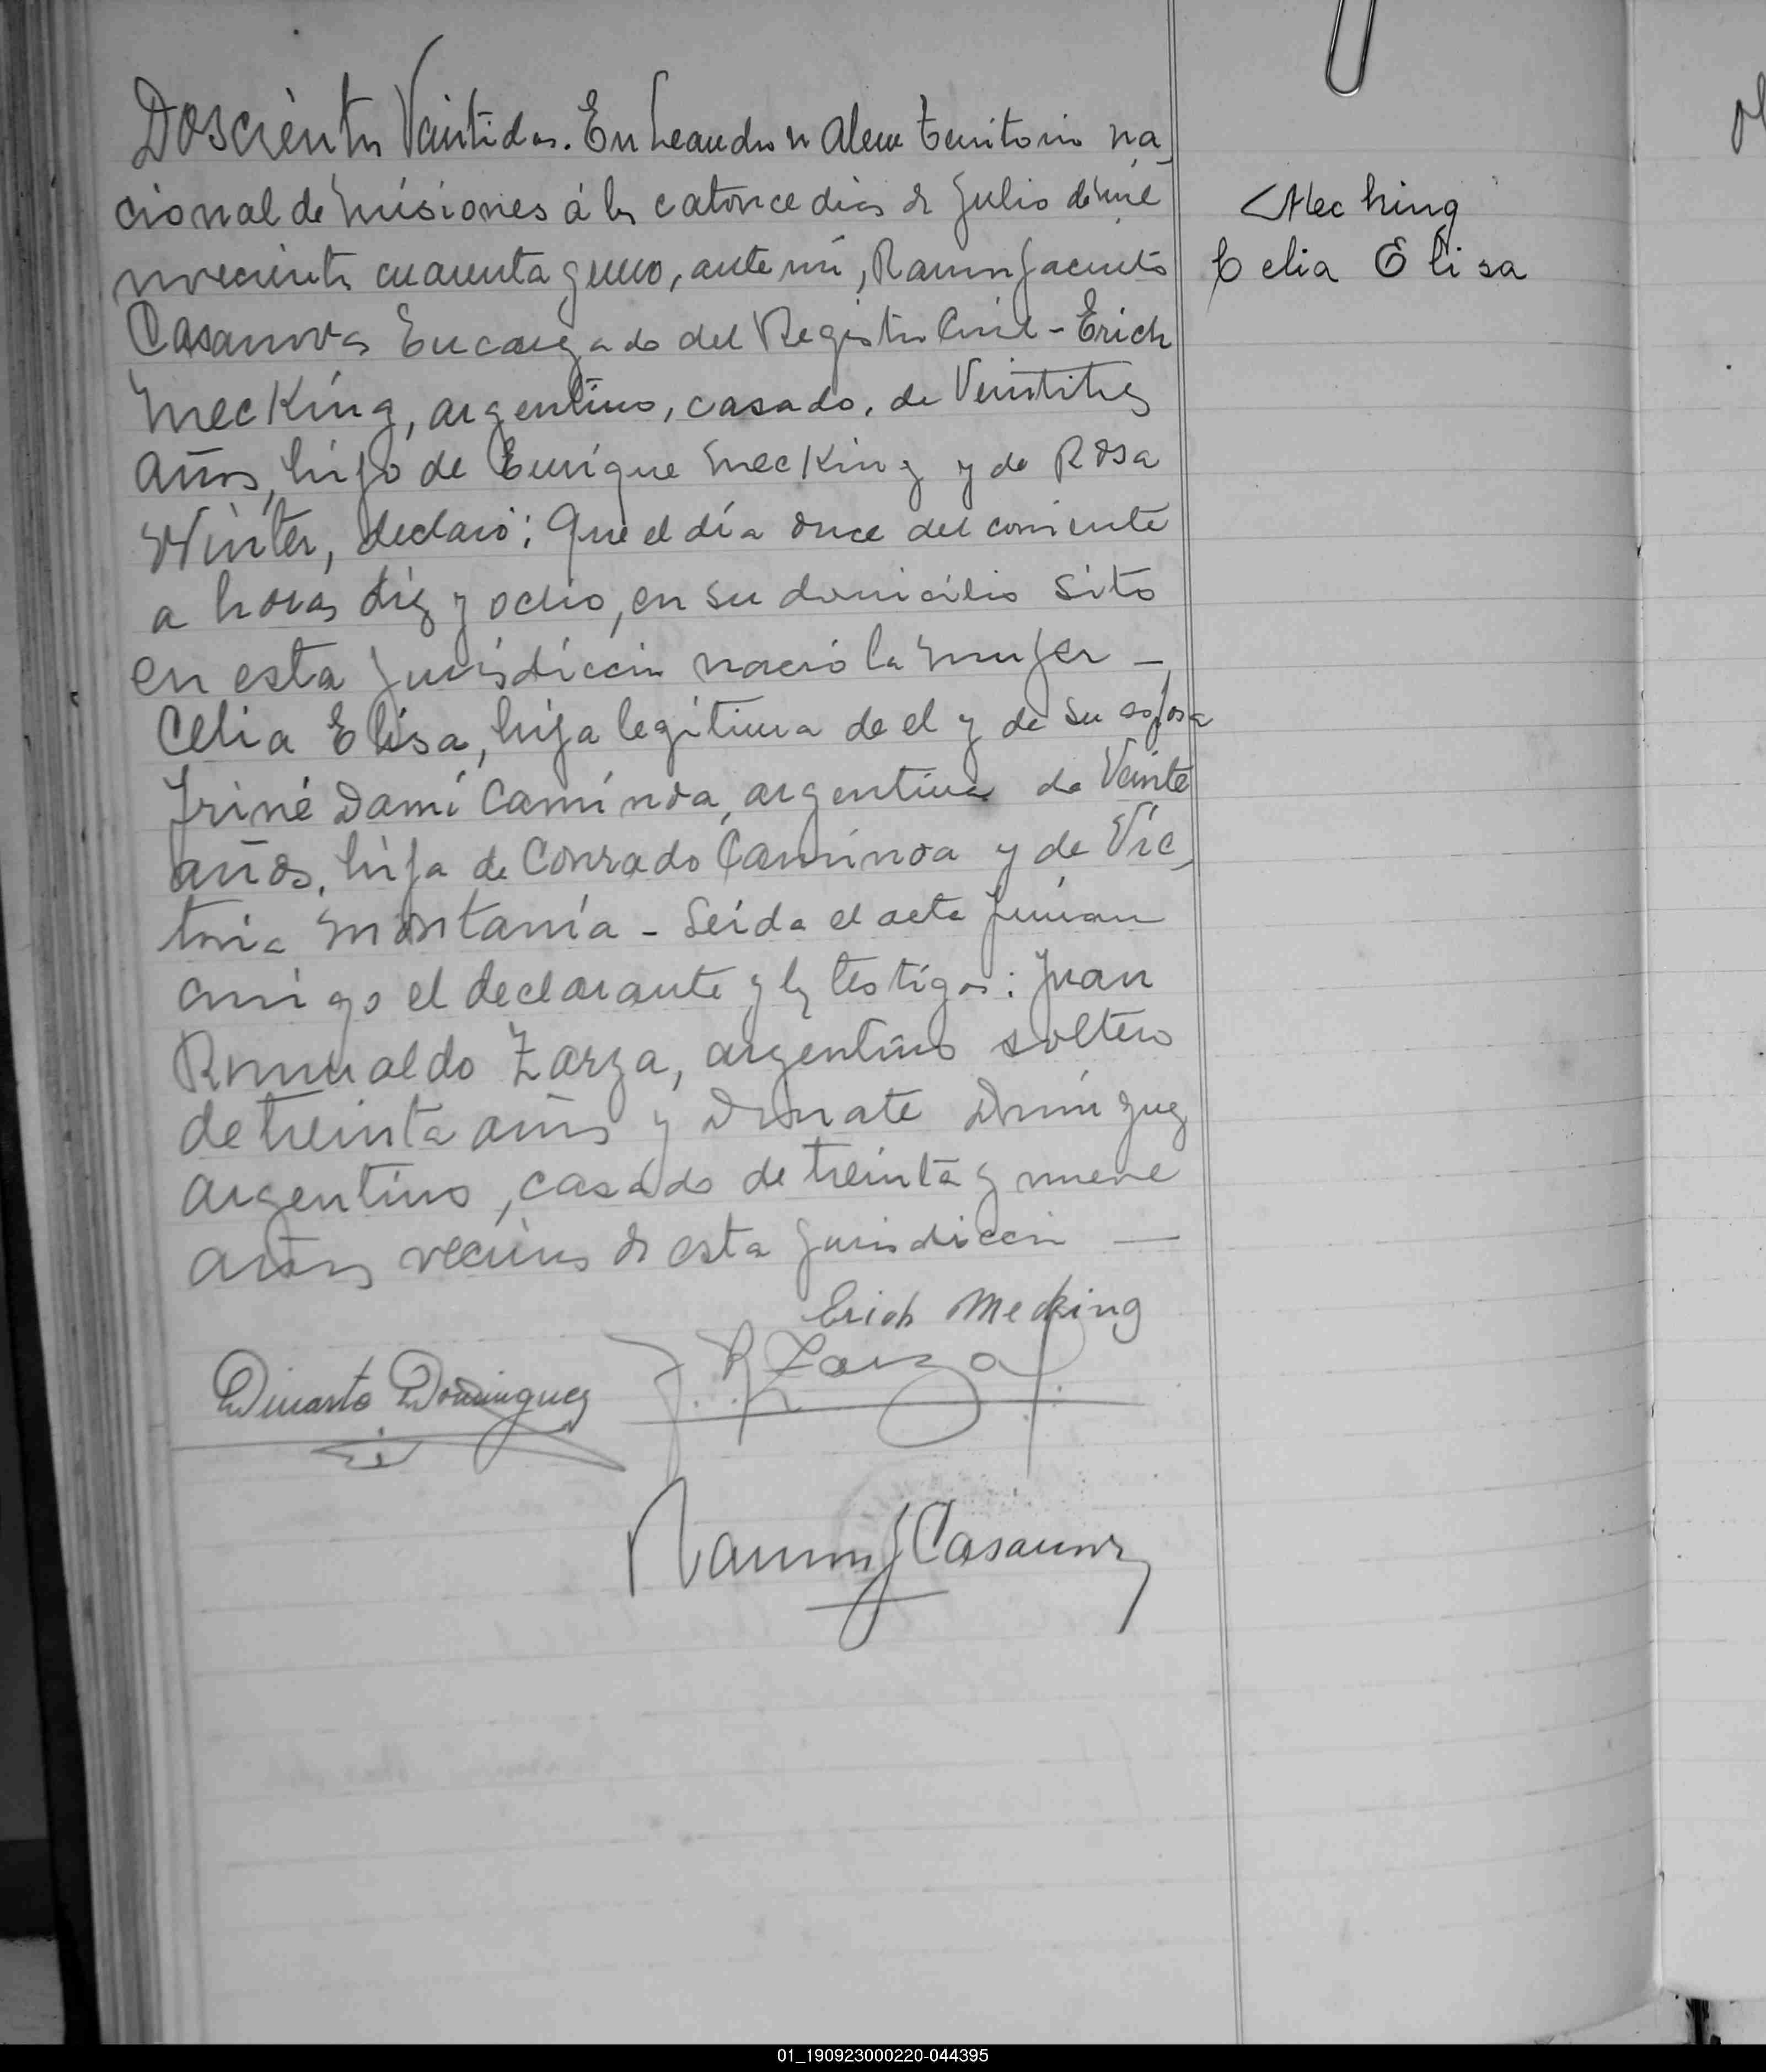 Doscientos Veintidos. En Leandro N Alem territorio na
cional de Misiones á los catorce dias de Julio de mil
novecientos cuarenta y uno, ante mí, Ramon Jacinto
Casanova Encargado del Registro Civil - Erich
Mec King, argentino, casado, de Veintitres
años, hijo de Enrique Mec King y de Rosa
Winter, declaró: Que el día once del corriente
a horas diez y ocho, en su domicilio sito
en esta jurisdiccion nació la mujer -
Celia Elisa, hija legitima de el y de su esposa
Iriné Damí Camínoa, argentina de Veinte
años, hija de Conrado Camínoa y de Vic
toria Montanía - Leida el acta firman
conmigo el declarante y los testigos: Juan
Romualdo Zarza, argentino soltero
de treinta años y Donate Dominguez
argentino, casado de treinta y nueve
años vecinos de esta jurisdiccion -
Erich Mecking
J. R Zarza
Dinarto Dominguez
Ramon J Casanova
Mec king
Celia Elisa
01_190923000220-044395